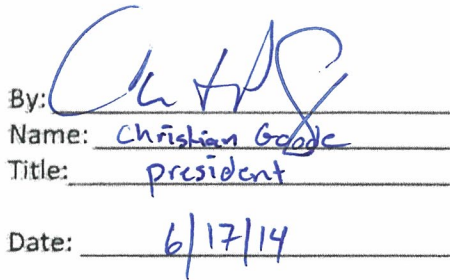 By:
Name: Christian Goode
Title: president
Date: 6/17/14